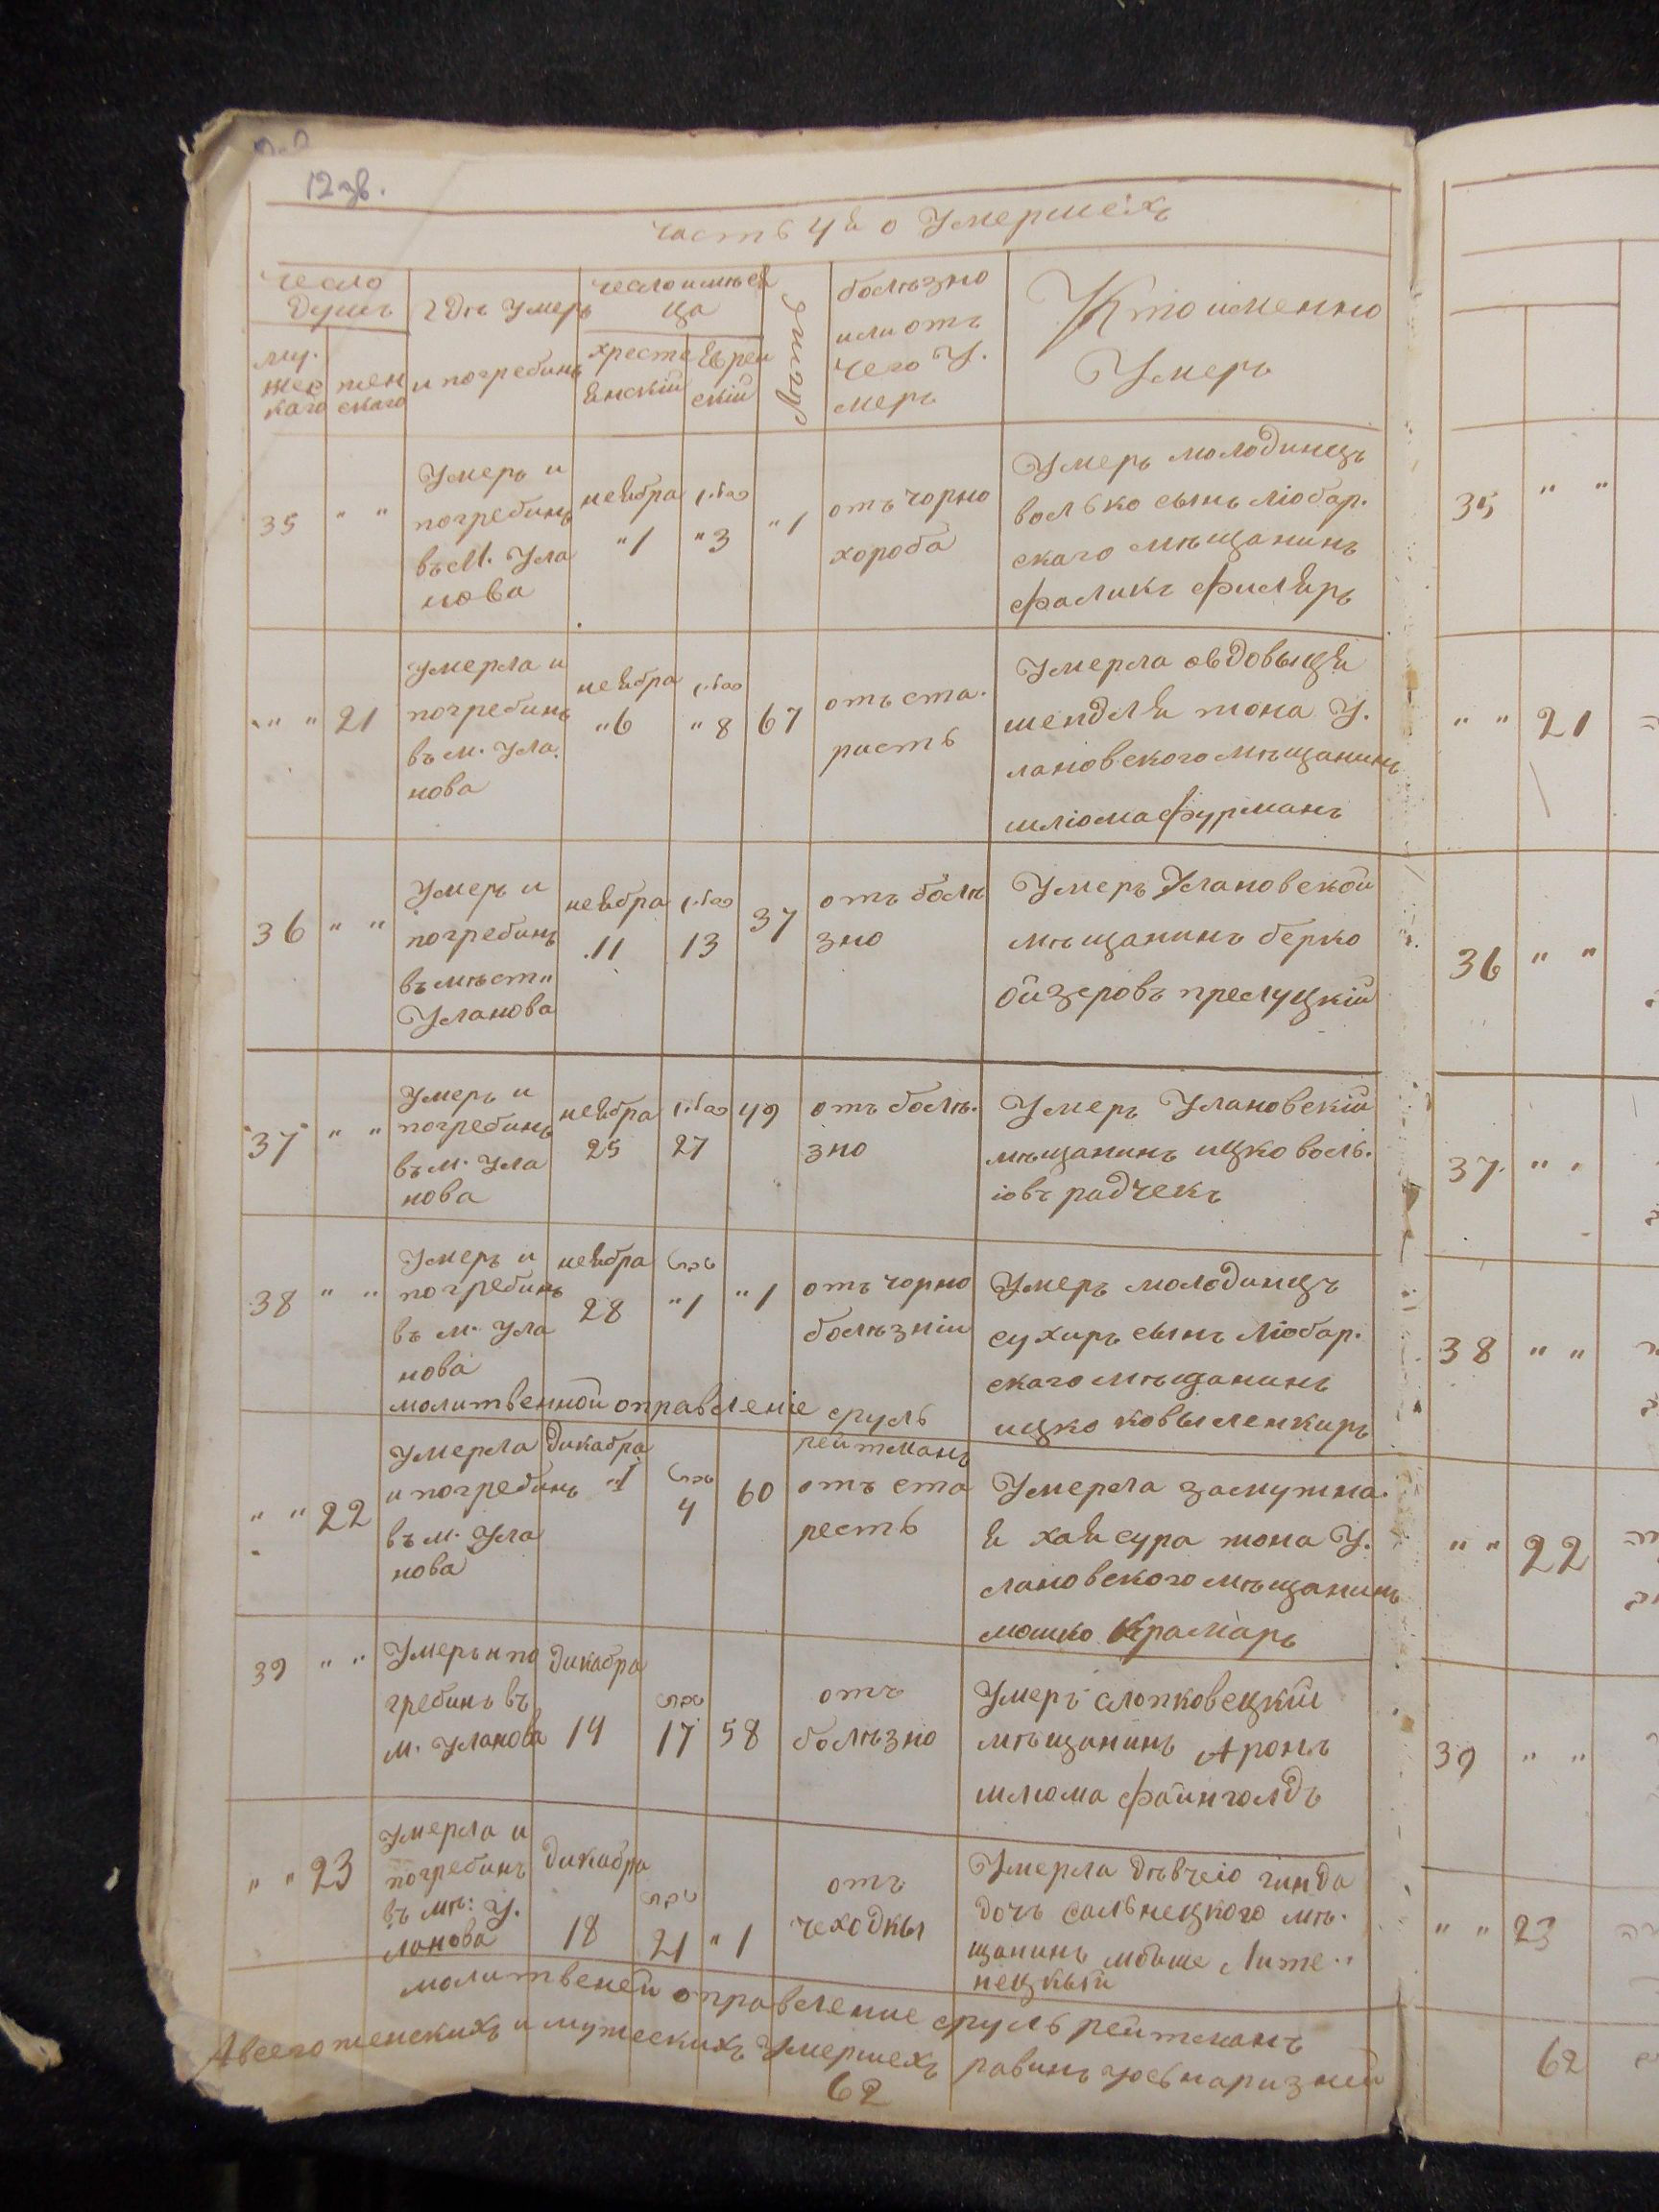 12 зв.
часть 4й о Умершехъ
чесло
душъ
муж
жес
каго
жен
скаго
гдѣ Умеръ
и погребинъ
чесло и мѣся
ца
хрести
янскій
Еврей
скій
болѣзно
или отъ
чего У.
меръ
Кто іменно
Умеръ
35 " "
Умеръ и
погребинъ
въ М. Ула
нова
неября
"1
"3
"1
отъ чорно
хороба
Умеръ молодинецъ
волько сынъ любар.
скаго мѣщанинъ
фаликъ филяръ
" " 21
умерла и
погребинъ
въ м. Ула.
нова
неября
"6
"8
67
отъ ста.
ристь
Умерла овдовыця
шендля жона У.
лановского мѣщанинъ
шліома фурманъ
36 " "
Умеръ и
погребинъ
въ мѣсти
Уланова
неября
11
13
37
отъ болѣ
зно
Умеръ Улановской
мѣщанинъ берко
ойзеровъ прелуцкій
37 " "
Умеръ и
погребинъ
въ м. Ула
нова
неября
25
27
49
отъ болѣ.
зно
Умеръ Улановскій
мѣщанинъ ицко воль.
іовъ радчекъ
38 " "
Умеръ и
погребинъ
въ м. Ула
нова
неября
28
"1
"1
отъ чорно
болѣзніи
Умеръ молодинецъ
сухиръ сынъ Любар.
скаго мѣщанинъ
ицко ковыленкиръ
молитвенной оправленіе сруль
рейтманъ
" " 22
Умерла
и погребинъ
въ м. Ула
нова
дикабря
"1
4
60
отъ ста
ресть
Умерла замужна.
я хая сура жона У.
лановского мѣщанинъ
мошко Крамаръ
39 " "
Умеръ и по
гребинъ въ
м. Уланова
дикабря
14
17
58
отъ
болѣзно
Умеръ слопковецкій
мѣщанинъ Аронъ
шлюма файнголдъ
" " 23
Умерла и
погребинъ
въ мѣ: У.
ланова
дикабря
18
21
"1
отъ
чеходкы
Умерла дѣвчею гинда
дочъ сальнецкого мѣ.
щанинъ мойше Лите
нецкый
молитвеней оправление сруль рейтманъ
Авсего женскихъ и мужескихъ Умершехъ равинъ
62
35 " "
" " 21
36 " "
37 " "
38 " "
" " 22
39 " "
" " 23
62